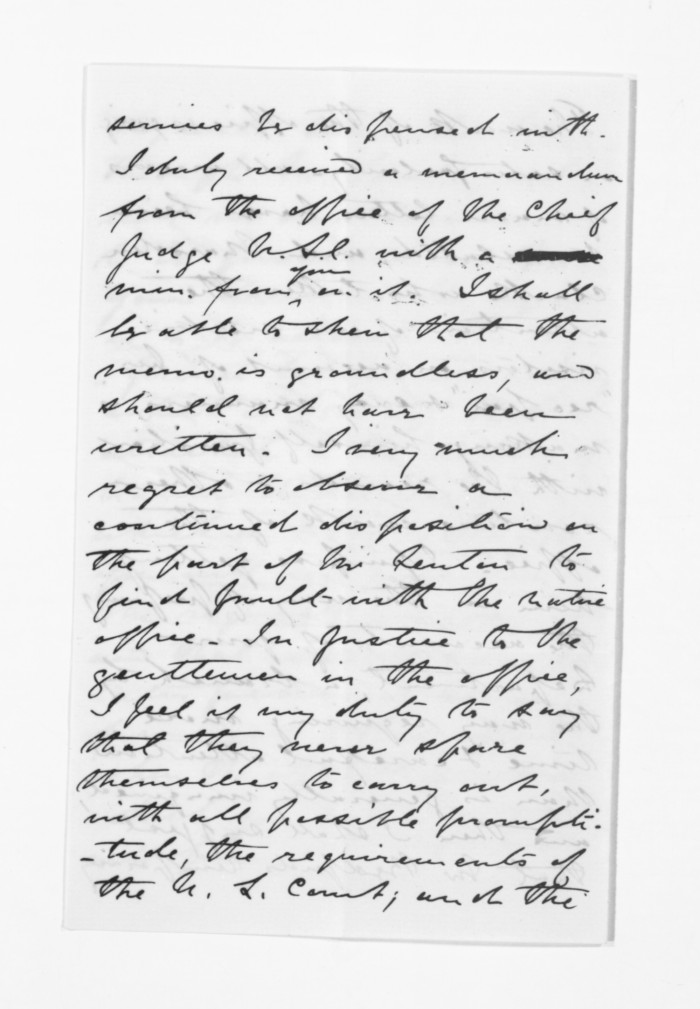 services be dispensed with.
I duly received a memorandum
from the office of the Chief
Judge N.L.C. with a
min. from you on it. I shall
be able to shew that the
memo. is groundless, and
should not have been
written. I very much
regret to observe a
continued disposition on
the part of Mr Fenton to
find fault with the native
office - In justice to the
gentlemen in the office,
I feel it my duty to say
that they never spare
themselves to carry out,
with all possible prompti-
-tude, the requirements of
the N. L. Court; and the